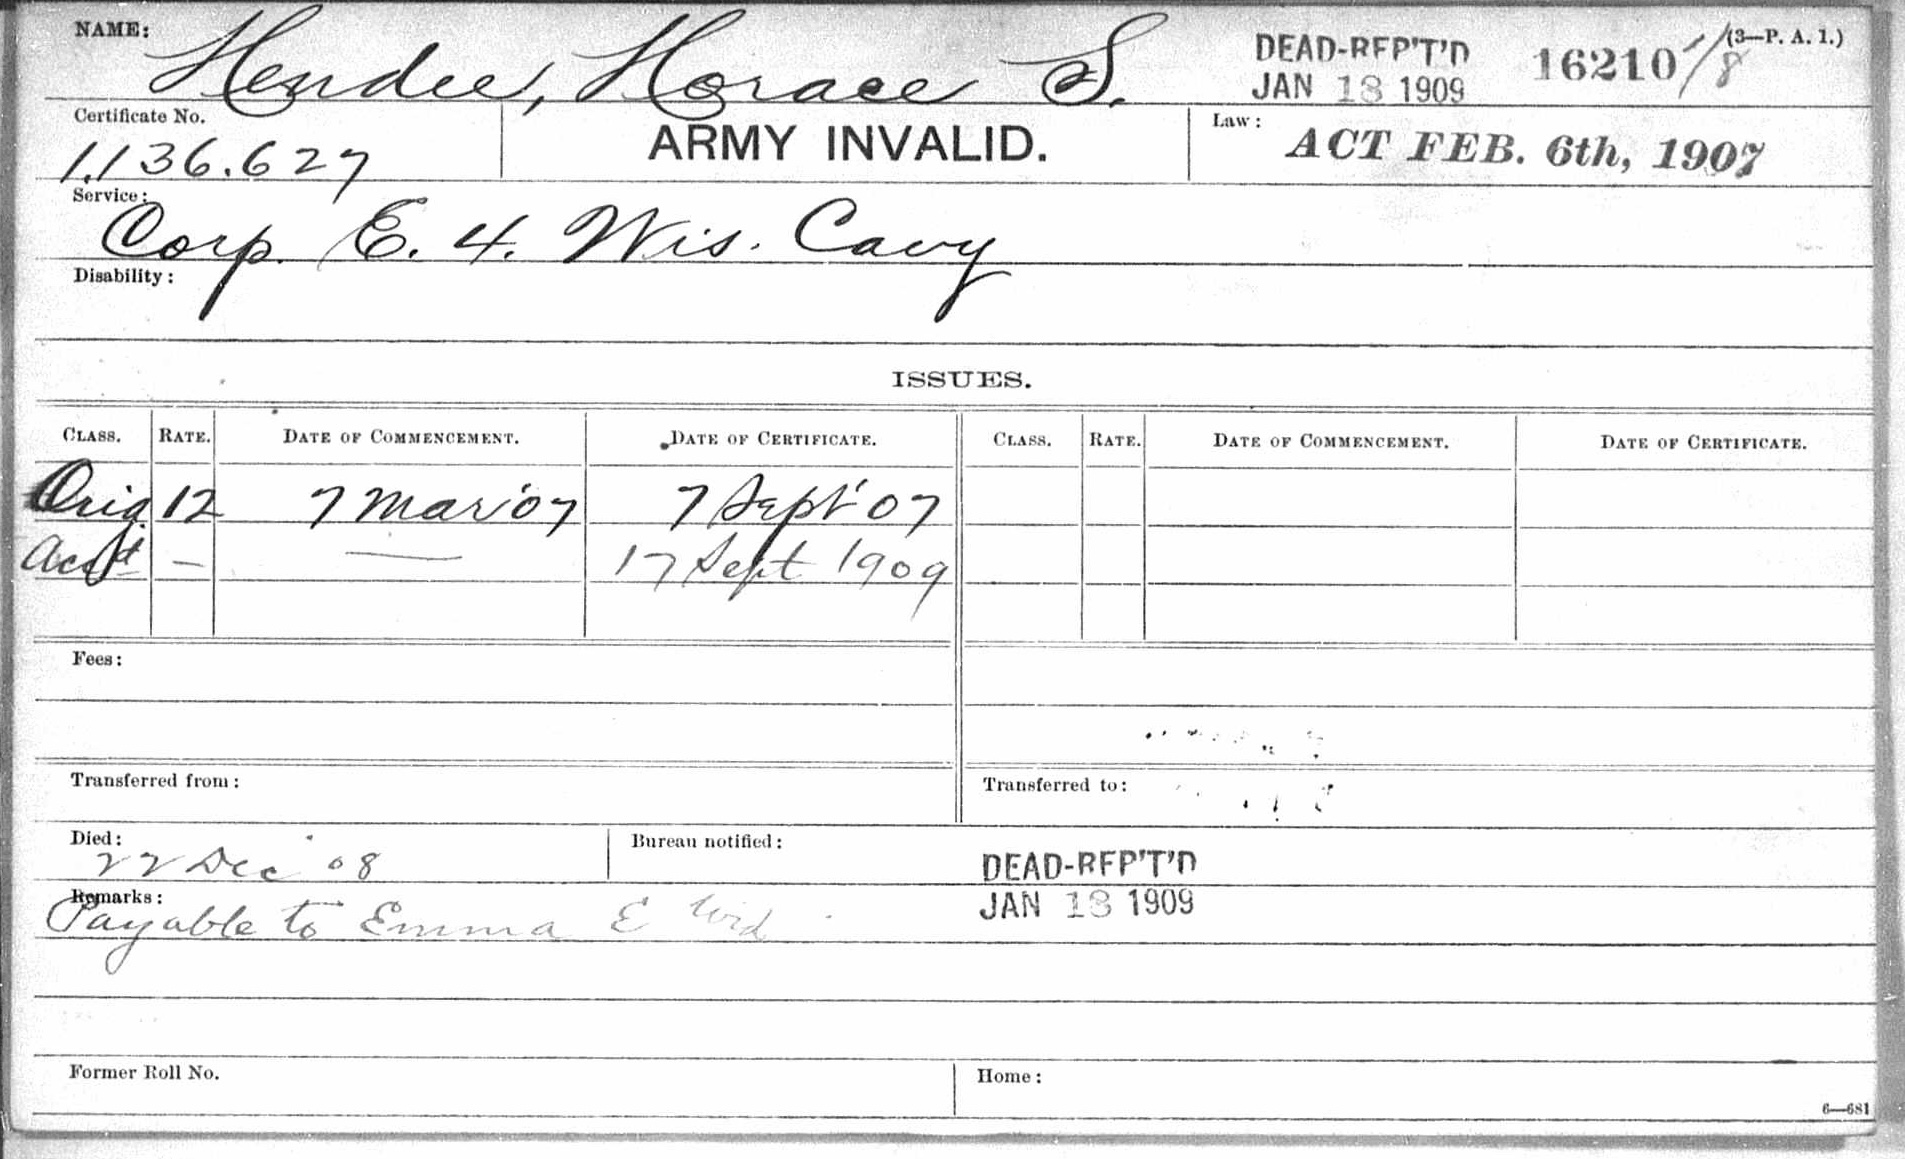 NAME: Hendee, Horace S. DEAD-REP'T'D JAN 13 1909 16210 /8 (3—P. A. 1.)
Certificate No. 1,136.627 ARMY INVALID. Law: ACT FEB. 6th, 1907
Service: Corp. E. 4. Wis. Cavy
Disability:
ISSUES.
CLASS. RATE. DATE OF COMMENCEMENT. DATE OF CERTIFICATE. CLASS. RATE. DATE OF COMMENCEMENT. DATE OF CERTIFICATE.
Orig. 12 7 Mar '07 7 Sept '07
Accd — — 17 Sept 1909
Fees:
Transferred from: Transferred to:
Died: 22 Dec '08 Bureau notified: DEAD-REP'T'D
Remarks: Payable to Emma E Wid JAN 13 1909
Former Roll No. Home:
6—681